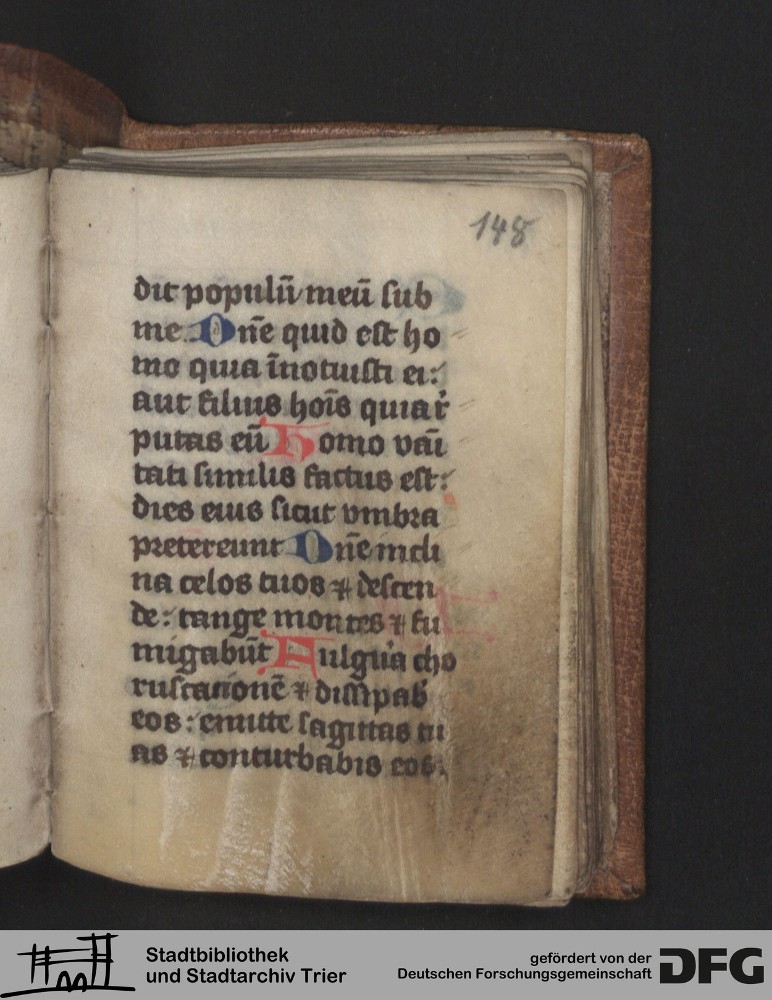 148
dit populū meū sub
me. Dn̄e quid est ho
mo quia īnotuisti ei:
aut filius hoīs quia r̄
putas eū Homo vāi
tati similis factus est:
dies eius sicut vmbra
pretereunt Dn̄e incli
na celos tuos ⁊ descen
de: tange montes ⁊ fu
migabūt Fulgura cho
ruscationē ⁊ dissipab̄
eos: emitte sagittas tu
as ⁊ conturbabis eos.
Stadtbibliothek
und Stadtarchiv Trier
gefördert von der
Deutschen Forschungsgemeinschaft
DFG